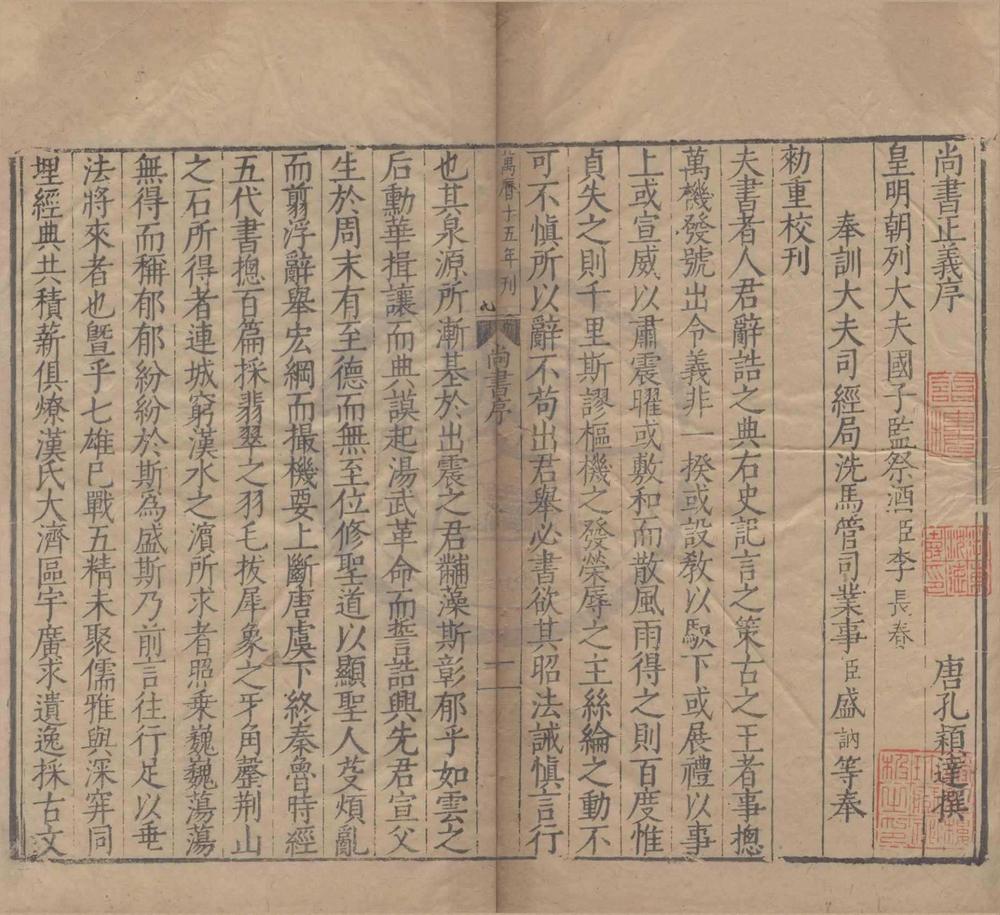 尚書正義序　唐孔穎達撰
皇明朝列大夫國子監祭酒臣李長春
奉訓大夫司經局洗馬管司業事臣盛訥等奉
勑重校刊
夫書者人君辭誥之典右史記言之策古之王者事摠
萬機發號出令義非一揆或設教以馭下或展禮以事
上或宣威以肅震曜或敷和而散風雨得之則百度惟
貞失之則千里斯謬樞機之發榮辱之主絲綸之動不
可不慎所以辭不苟出君舉必書欲其昭法誡慎言行
萬曆十五年刊
尚書序
一
也其泉源所漸基於出震之君黼藻斯彰郁乎如雲之
后勳華揖讓而典謨起湯武革命而誓誥興先君宣父
生於周末有至德而無至位修聖道以顯聖人芟煩亂
而翦浮辭舉宏綱而撮機要上斷唐虞下終秦魯時經
五代書摠百篇採翡翠之羽毛拔犀象之牙角罄荆山
之石所得者連城窮漢水之濱所求者照乗巍巍蕩蕩
無得而稱郁郁紛紛於斯為盛斯乃前言往行足以垂
法將來者也曁乎七雄已戰五精未聚儒雅與深穽同
埋經典共積薪俱燎漢氏大濟區宇廣求遺逸採古文